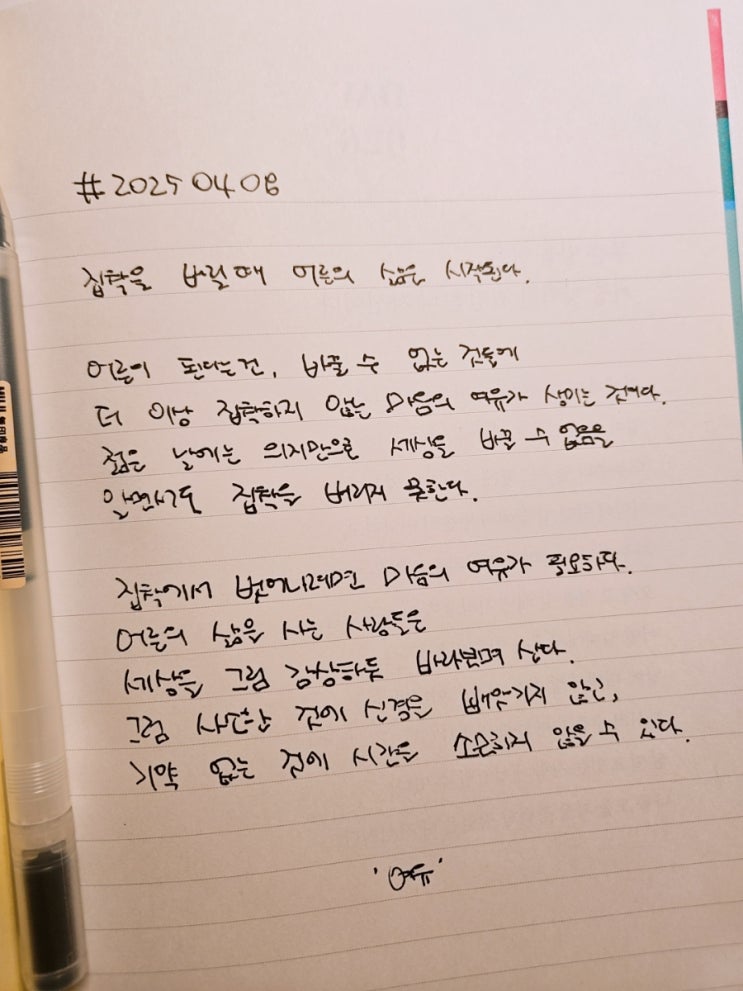 #20250408
집착을 버릴 때 어른의 삶은 시작된다.
어른이 된다는건, 바꿀 수 없는 것들에
더 이상 집착하지 않는 마음의 여유가 생기는 것이다.
젊은 날에는 의지만으로 세상을 바꿀 수 없음을
알면서도 집착을 버리지 못한다.
집착에서 벗어나려면 마음의 여유가 필요하다.
어른의 삶을 사는 사람들은
세상을 그림 감상하듯 바라보며 산다.
그럼 사소한 것에 신경을 빼앗기지 않고,
기약 없는 것에 시간을 소모하지 않을 수 있다.
'여유'